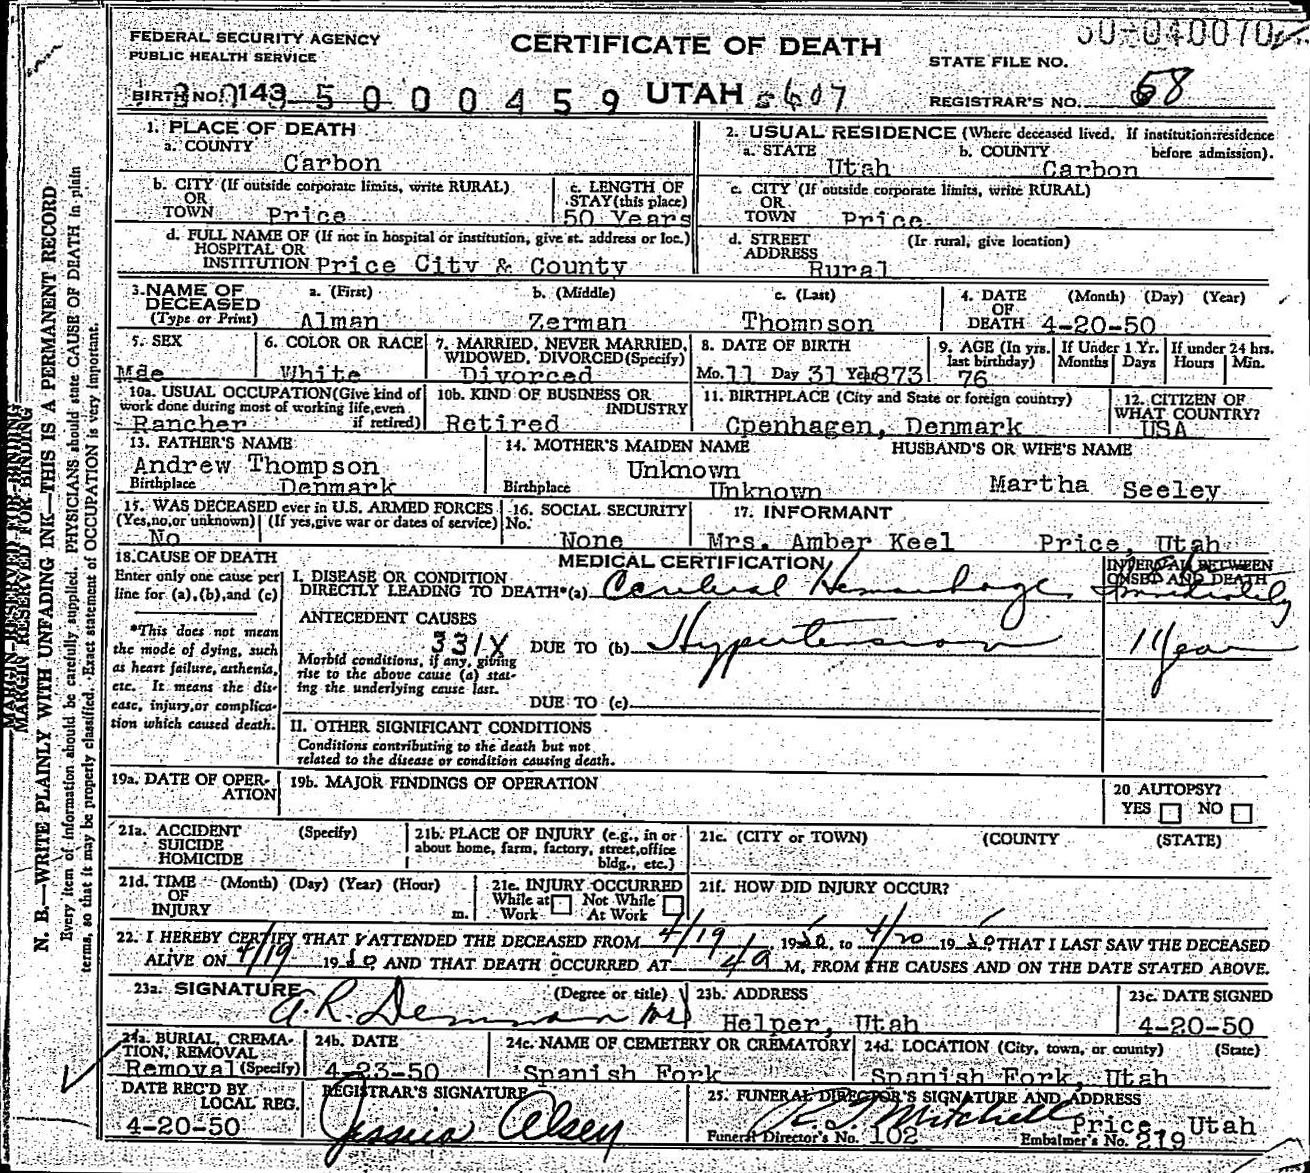 50-040070
FEDERAL SECURITY AGENCY
PUBLIC HEALTH SERVICE
CERTIFICATE OF DEATH
STATE FILE NO.
BIRTH NO. 143 5 0 0 0 0 4 5 9 UTAH 5607 REGISTRAR'S NO. 68
1. PLACE OF DEATH
a. COUNTY
Carbon
2. USUAL RESIDENCE (Where deceased lived. If institution:residence before admission).
a. STATE Utah b. COUNTY Carbon
b. CITY (If outside corporate limits, write RURAL)
OR
TOWN Price
c. LENGTH OF STAY (this place)
50 Years
c. CITY (If outside corporate limits, write RURAL)
OR
TOWN Price
d. FULL NAME OF (If not in hospital or institution, give st. address or loc.)
HOSPITAL OR
INSTITUTION Price City & County
d. STREET ADDRESS (Ir rural, give location)
Rural
3. NAME OF DECEASED (Type or Print)
a. (First) b. (Middle) c. (Last)
Alman Zerman Thompson
4. DATE OF DEATH (Month) (Day) (Year)
4-20-50
5. SEX
Mae
6. COLOR OR RACE
White
7. MARRIED, NEVER MARRIED, WIDOWED, DIVORCED (Specify)
Divorced
8. DATE OF BIRTH
Mo. 11 Day 31 Year 1873
9. AGE (In yrs. last birthday)
76
If Under 1 Yr. Months Days
If under 24 hrs. Hours Min.
10a. USUAL OCCUPATION (Give kind of work done during most of working life, even if retired)
Rancher
10b. KIND OF BUSINESS OR INDUSTRY
Retired
11. BIRTHPLACE (City and State or foreign country)
Cpenhagen, Denmark
12. CITIZEN OF WHAT COUNTRY?
USA
13. FATHER'S NAME
Andrew Thompson
Birthplace Denmark
14. MOTHER'S MAIDEN NAME
Unknown
Birthplace Unknown
HUSBAND'S OR WIFE'S NAME
Martha Seeley
15. WAS DECEASED ever in U.S. ARMED FORCES
(Yes, no, or unknown) (If yes, give war or dates of service)
No
16. SOCIAL SECURITY No.
None
17. INFORMANT
Mrs. Amber Keel Price, Utah
18. CAUSE OF DEATH
Enter only one cause per line for (a), (b), and (c)
*This does not mean the mode of dying, such as heart failure, asthenia, etc. It means the disease, injury, or complication which caused death.
MEDICAL CERTIFICATION
INTERVAL BETWEEN ONSET AND DEATH
I. DISEASE OR CONDITION
DIRECTLY LEADING TO DEATH*(a) Cerebral Hemorrhage Immediately
ANTECEDENT CAUSES
331X
DUE TO (b) Hypertension 1 Year
Morbid conditions, if any, giving rise to the above cause (a) stating the underlying cause last.
DUE TO (c)
II. OTHER SIGNIFICANT CONDITIONS
Conditions contributing to the death but not related to the disease or condition causing death.
19a. DATE OF OPERATION
19b. MAJOR FINDINGS OF OPERATION
20 AUTOPSY?
YES NO
21a. ACCIDENT SUICIDE HOMICIDE (Specify)
21b. PLACE OF INJURY (e.g., in or about home, farm, factory, street, office bldg., etc.)
21c. (CITY or TOWN) (COUNTY) (STATE)
21d. TIME OF INJURY (Month) (Day) (Year) (Hour) m.
21e. INJURY OCCURRED
While at Work Not While At Work
21f. HOW DID INJURY OCCUR?
22. I HEREBY CERTIFY THAT I ATTENDED THE DECEASED FROM 4/19, 1950, to 4/20 1950 THAT I LAST SAW THE DECEASED
ALIVE ON 4/19 1950, AND THAT DEATH OCCURRED AT 4a M, FROM THE CAUSES AND ON THE DATE STATED ABOVE.
23a. SIGNATURE (Degree or title)
A.R. Demman MD
23b. ADDRESS
Helper, Utah
23c. DATE SIGNED
4-20-50
24a. BURIAL, CREMATION, REMOVAL (Specify)
Removal
24b. DATE
4-23-50
24c. NAME OF CEMETERY OR CREMATORY
Spanish Fork
24d. LOCATION (City, town, or county) (State)
Spanish Fork, Utah
DATE REC'D BY LOCAL REG.
4-20-50
REGISTRAR'S SIGNATURE
Olsen
25. FUNERAL DIRECTOR'S SIGNATURE AND ADDRESS
Mitchell Price, Utah
Funeral Director's No. 102 Embalmer's No. 219
MARGIN RESERVED FOR BINDING
N. B.—WRITE PLAINLY WITH UNFADING INK—THIS IS A PERMANENT RECORD
Every item of information should be carefully supplied. PHYSICIANS should state CAUSE OF DEATH in plain
terms, so that it may be properly classified. Exact statement of OCCUPATION is very important.